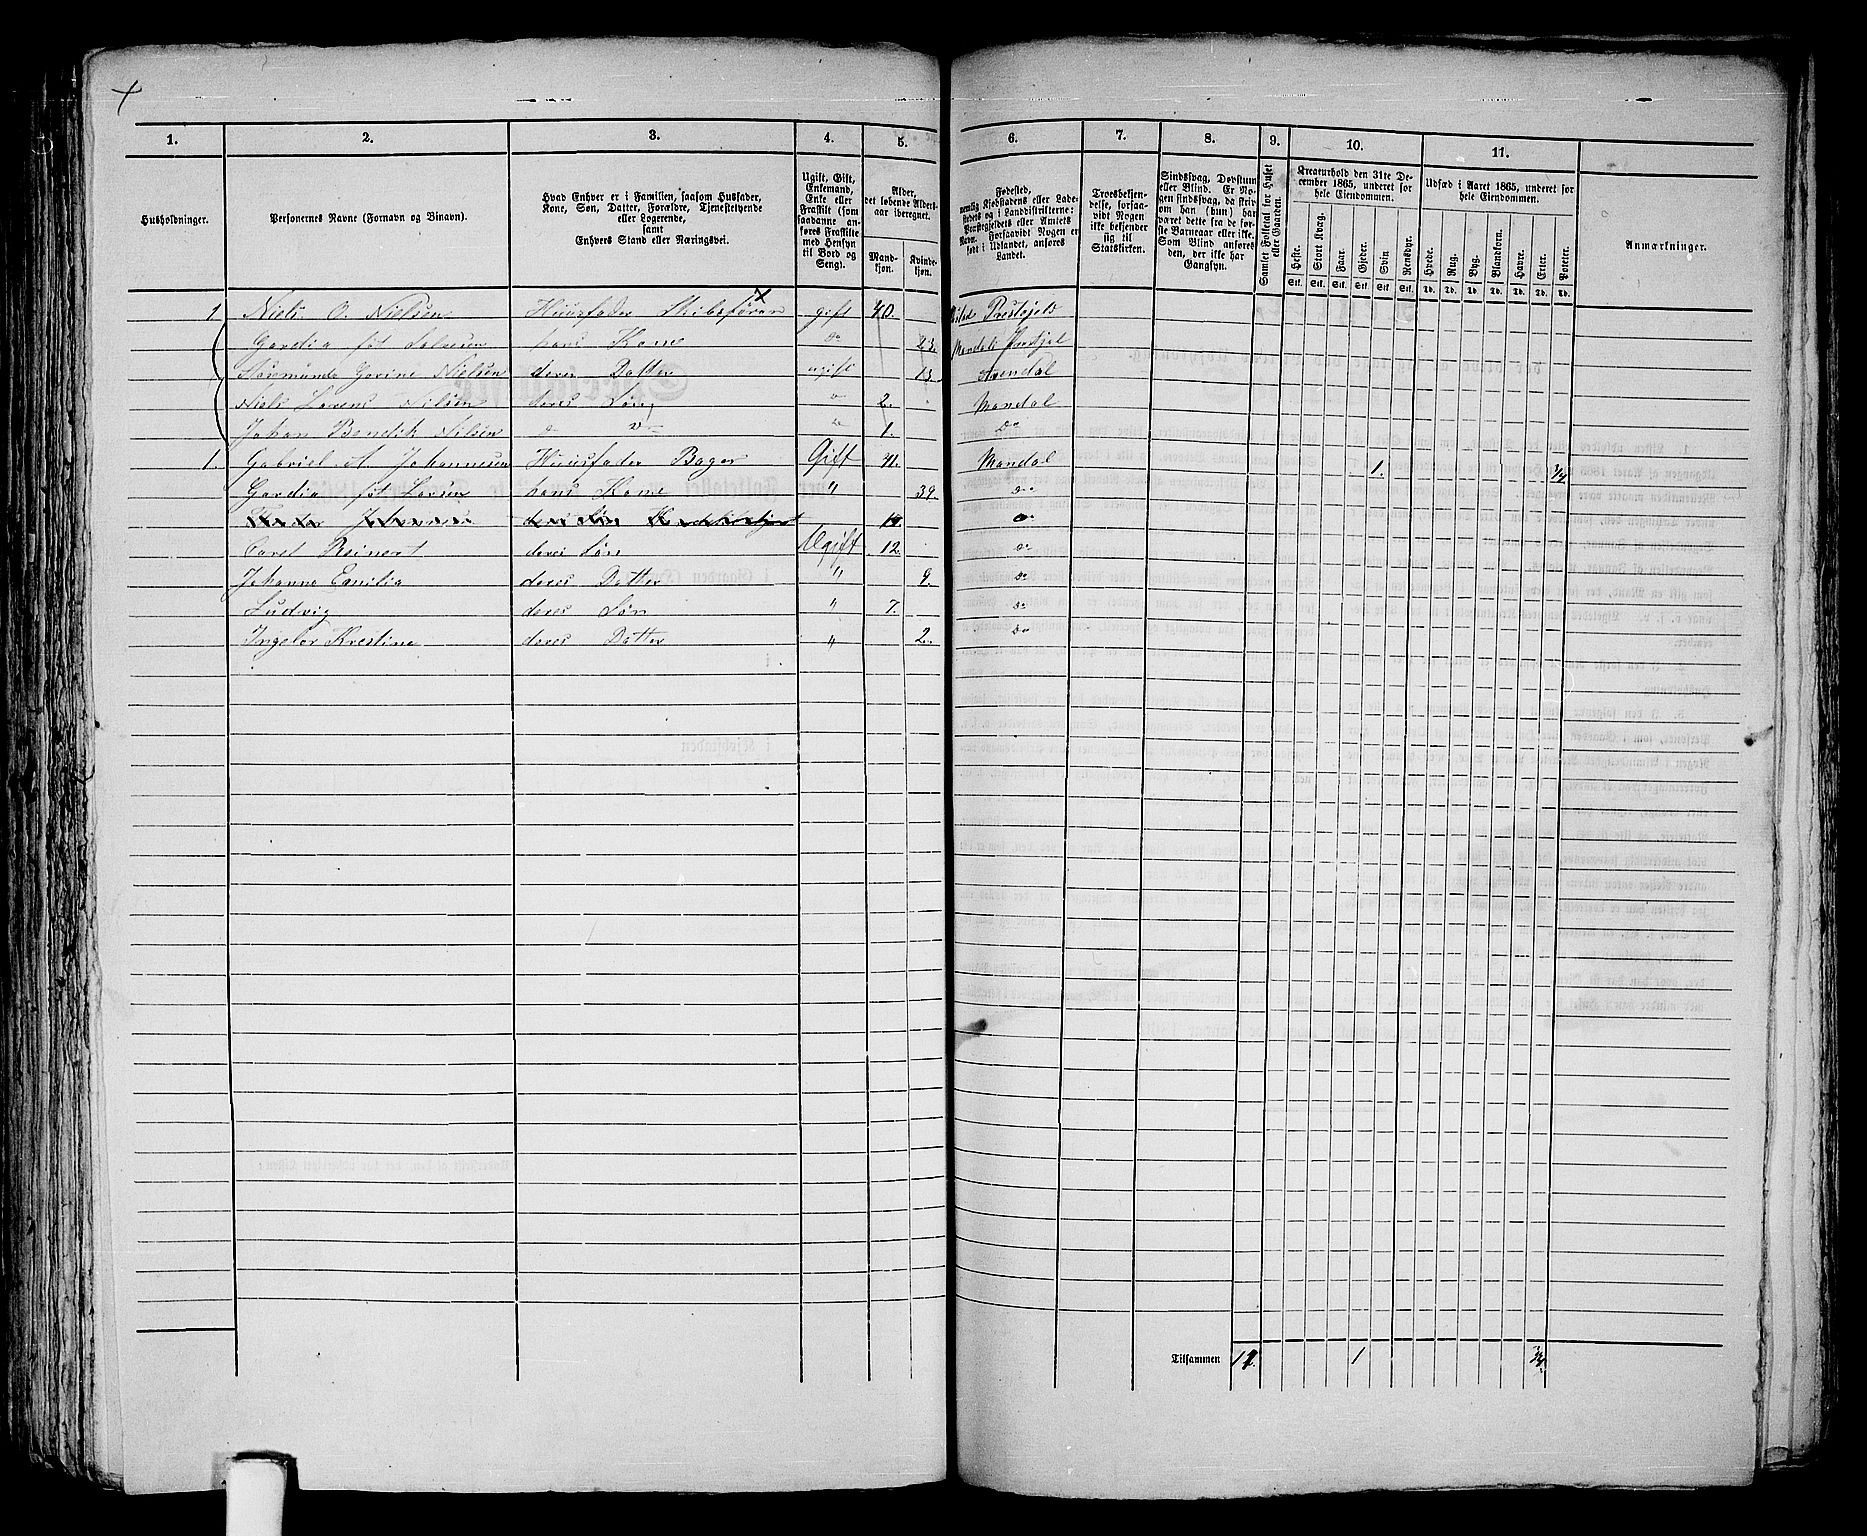 1. 2. 3. 4. 5. 6. 7. 8. 9. 10. 11.
Husholdninger.
Personernes Navne (Fornavn og Binavn).
Hvad Enhver er i Familien, saasom Husfader,
Kone, Søn, Datter, Forældre, Tjenestetyende
eller Logerende,
samt
Enhvers Stand eller Næringsvei.
Ugift, Gift,
Enkemand,
Enke eller
Fraskilt (som
saadanne an-
føres Fraskilte
med Hensyn
til Bord og
Seng).
Alder,
det løbende Alders-
aar iberegnet.
Mand-
kjøn.
Kvinde-
kjøn.
Fødested,
nemlig Kjøbstadens eller Lade-
stedets og i Landdistrikterne:
Præstegjeldets eller Amtets
Navn. Forsaavidt Nogen er
født i Udlandet, anføres
Landet.
Troesbekjen-
delse, forsaa-
vidt Nogen
ikke bekjender
sig til
Statskirken.
Sindssvag, Døvstum
eller Blind. Er No-
gen sindssvag, da skriv
om han (hun) har
været dette fra de før-
ste Barneaar eller ikke.
Som Blind anføres
den, der ikke har
Gangsyn.
Samlet Folketal for Huset
eller Gaarden.
Kreaturhold den 31te De-
cember 1865, underet for
hele Eiendommen.
Heste.
Stort Kvæg.
Faar.
Gjeder.
Svin
Rensdyr.
Stk. Stk. Stk. Stk. Stk. Stk.
Udsæd i Aaret 1865, underet for
hele Eiendommen.
Hvede.
Rug.
Byg.
Blandkorn.
Havre.
Erter.
Poteter.
Td. Td. Td. Td. Td. Td. Td.
Anmærkninger.
1. Niels O. Nielsen Huusfader Skibsfører gift 40. Prestejeld
Gardia føt Salvesen hans Kone do 23. Mandals Prestjel
Gorine Nielsen deres Datter ugift 13. Arendal
Niels Lorens Nilsen deres Søn 2. Mandal
Johan Bendik Nilsen 1. Do
1. Gabriel A. Johannesen Huusfader Bager Gift 41. Mandal 1. 3/4
Gardia føt Larsen hans Kone " 39. Do
deres Søn 19 Do
Carel Reinert deres Søn Ugift 12. Do
Johanna Emilia deres Datter " 9. Do
Ludvig deres Søn " 7. Do
Ingebor Krestine deres Datter " 2. Do
Tilsammen 1 3/4